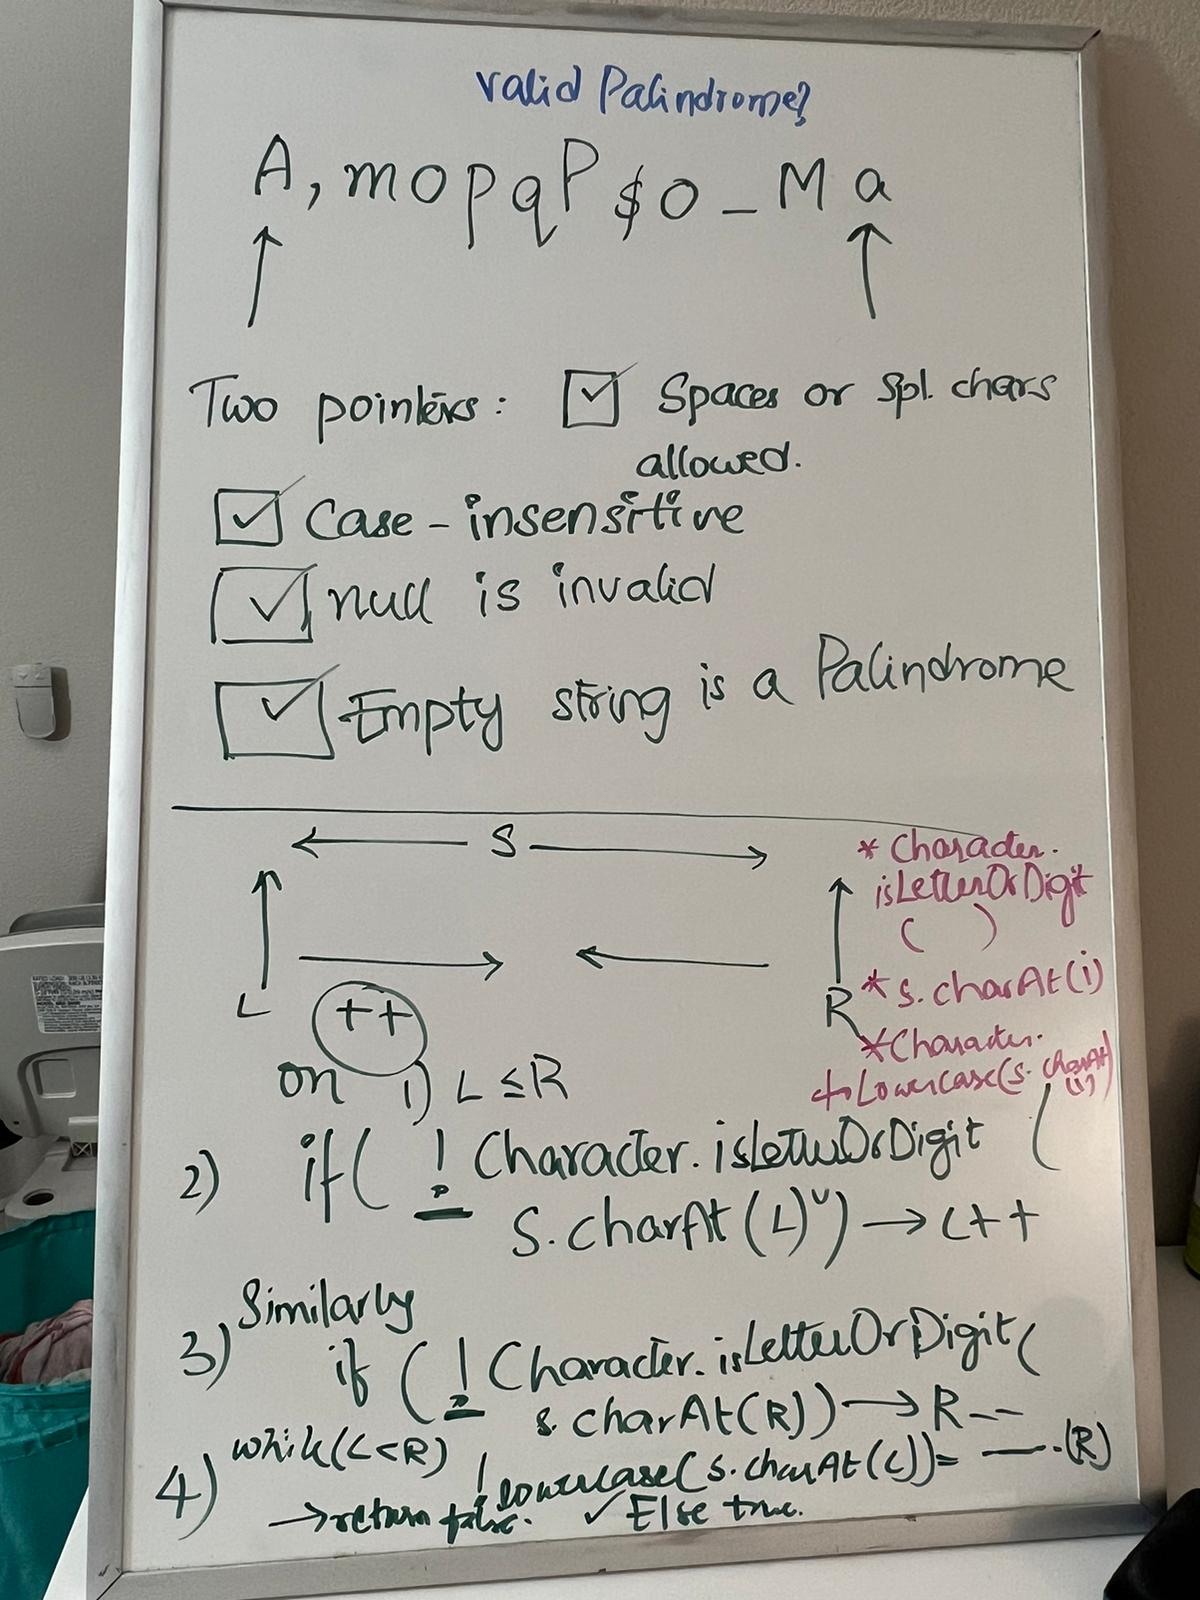 valid Palindrome?
A, mopqP$o_Ma
Two pointers: Spaces or Spl. chars
allowed.
Case-insensitive
null is invalid
Empty string is a Palindrome
S
* Character.
isLetterOrDigit
( )
L
R
* s.charAt(i)
++
* Character.
toLowercase(s.charAt
(i)
on 1) L ≤ R
2) if( ! Character.isLetterOrDigit (
S.charAt(L)) → L++
Similarly
3) if ( ! Character.isLetterOrDigit(
s.charAt(R)) → R--
4) while(L<R) ! lowercase(s.charAt(L))= —.(R)
→ return false. ✓ Else true.